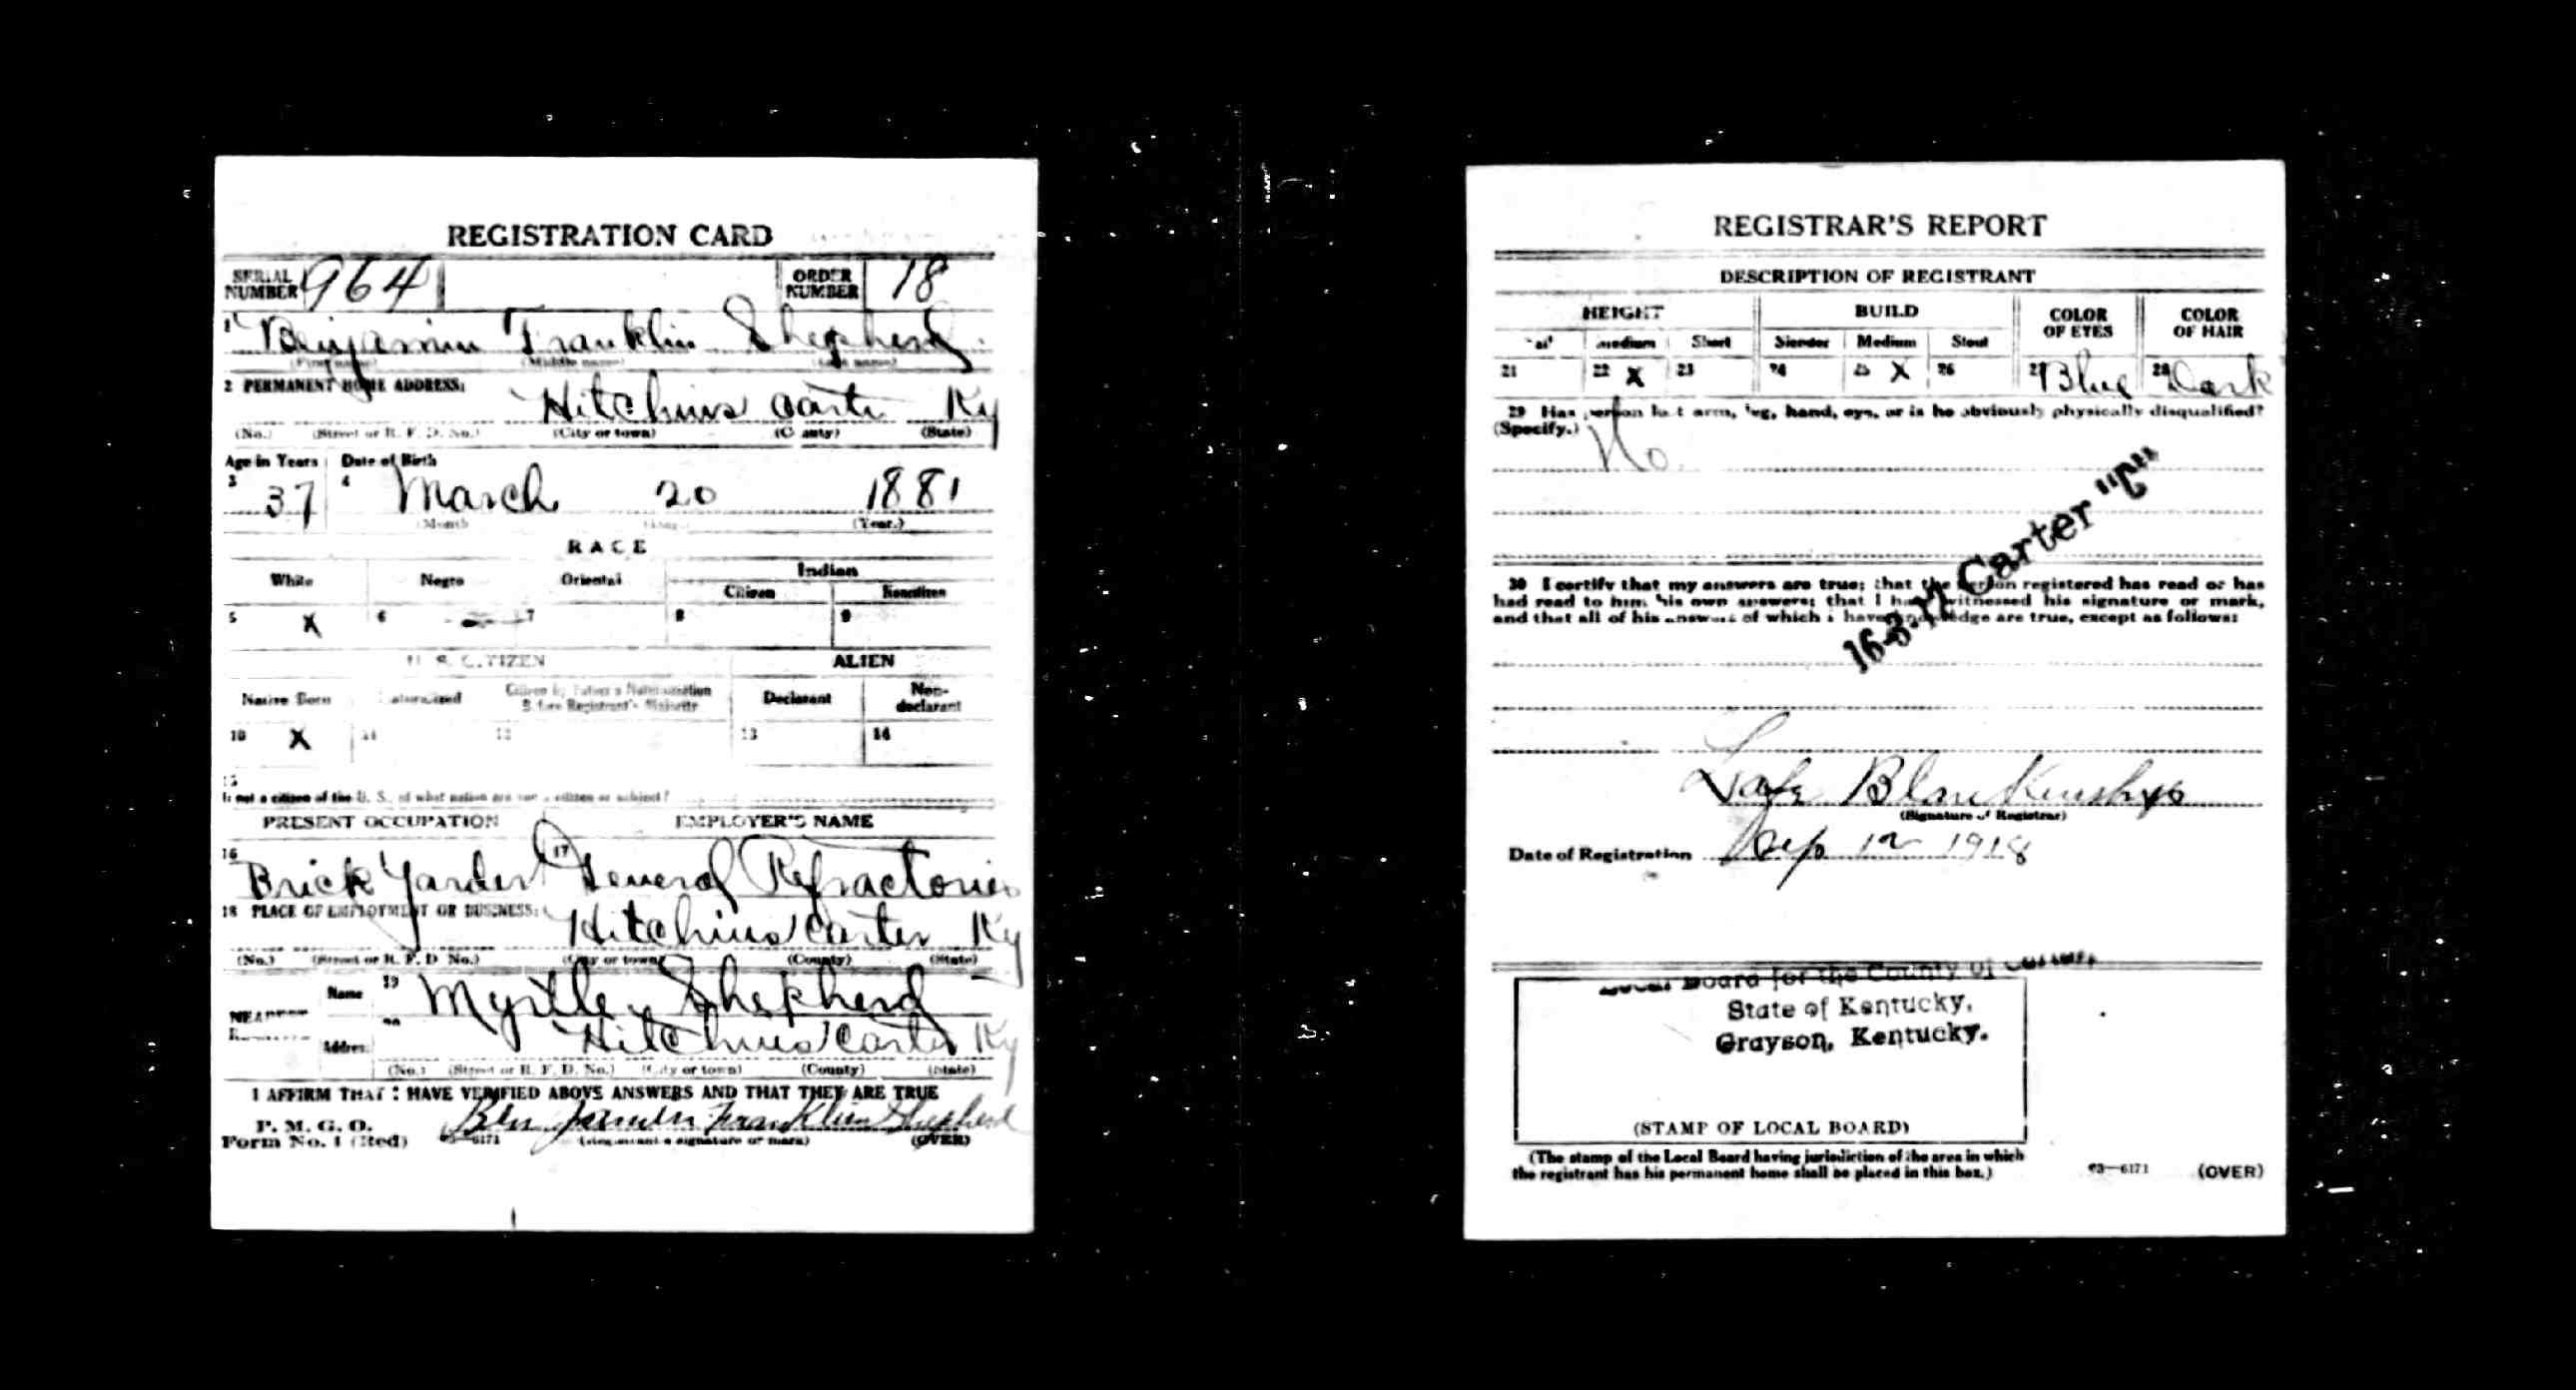 REGISTRATION CARD
SERIAL NUMBER 964 ORDER NUMBER 18
1 Benjamin Franklin Shepherd
(First name) (Middle name) (Last name)
2 PERMANENT HOME ADDRESS:
Hitchins Carter Ky
(No.) (Street or R. F. D. No.) (City or town) (County) (State)
Age in Years Date of Birth
3 37 4 March 20 1881
(Month) (Year.)
RACE
White Negro Oriental Indian
Citizen Noncitizen
5 X 6 7 8 9
U. S. CITIZEN ALIEN
Native Born Naturalized Citizen by Father's Naturalization Before Registrant's Majority Declarant Non-declarant
10 X 11 12 13 14
15
If not a citizen of the U. S., of what nation are you a citizen or subject?
PRESENT OCCUPATION EMPLOYER'S NAME
16 Brick Yarder 17 General Refractories
18 PLACE OF EMPLOYMENT OR BUSINESS:
Hitchins Carter Ky
(No.) (Street or R. F. D. No.) (City or town) (County) (State)
NEAREST Name 19 Myrtle Shepherd
Address 20 Hitchins Carter Ky
(No.) (Street or R. F. D. No.) (City or town) (County) (State)
I AFFIRM THAT I HAVE VERIFIED ABOVE ANSWERS AND THAT THEY ARE TRUE
P. M. G. O.
Form No. 1 (Red) Ben Jamen Franklin Shepherd
6171 (Registrant's signature or mark) (OVER)
REGISTRAR'S REPORT
DESCRIPTION OF REGISTRANT
HEIGHT BUILD COLOR OF EYES COLOR OF HAIR
Tall Medium Short Slender Medium Stout
21 22 X 23 24 25 X 26 27 Blue 28 Dark
29 Has person lost arm, leg, hand, eye, or is he obviously physically disqualified?
(Specify.) No.
16-3-12 Carter "C"
30 I certify that my answers are true; that the person registered has read or has
had read to him his own answers; that I have witnessed his signature or mark,
and that all of his answers of which I have knowledge are true, except as follows:
Lafe Blankenship
(Signature of Registrar)
Date of Registration Sep 12 1918
Local Board for the County of Carter,
State of Kentucky,
Grayson, Kentucky.
(STAMP OF LOCAL BOARD)
(The stamp of the Local Board having jurisdiction of the area in which
the registrant has his permanent home shall be placed in this box.)
03—6171 (OVER)